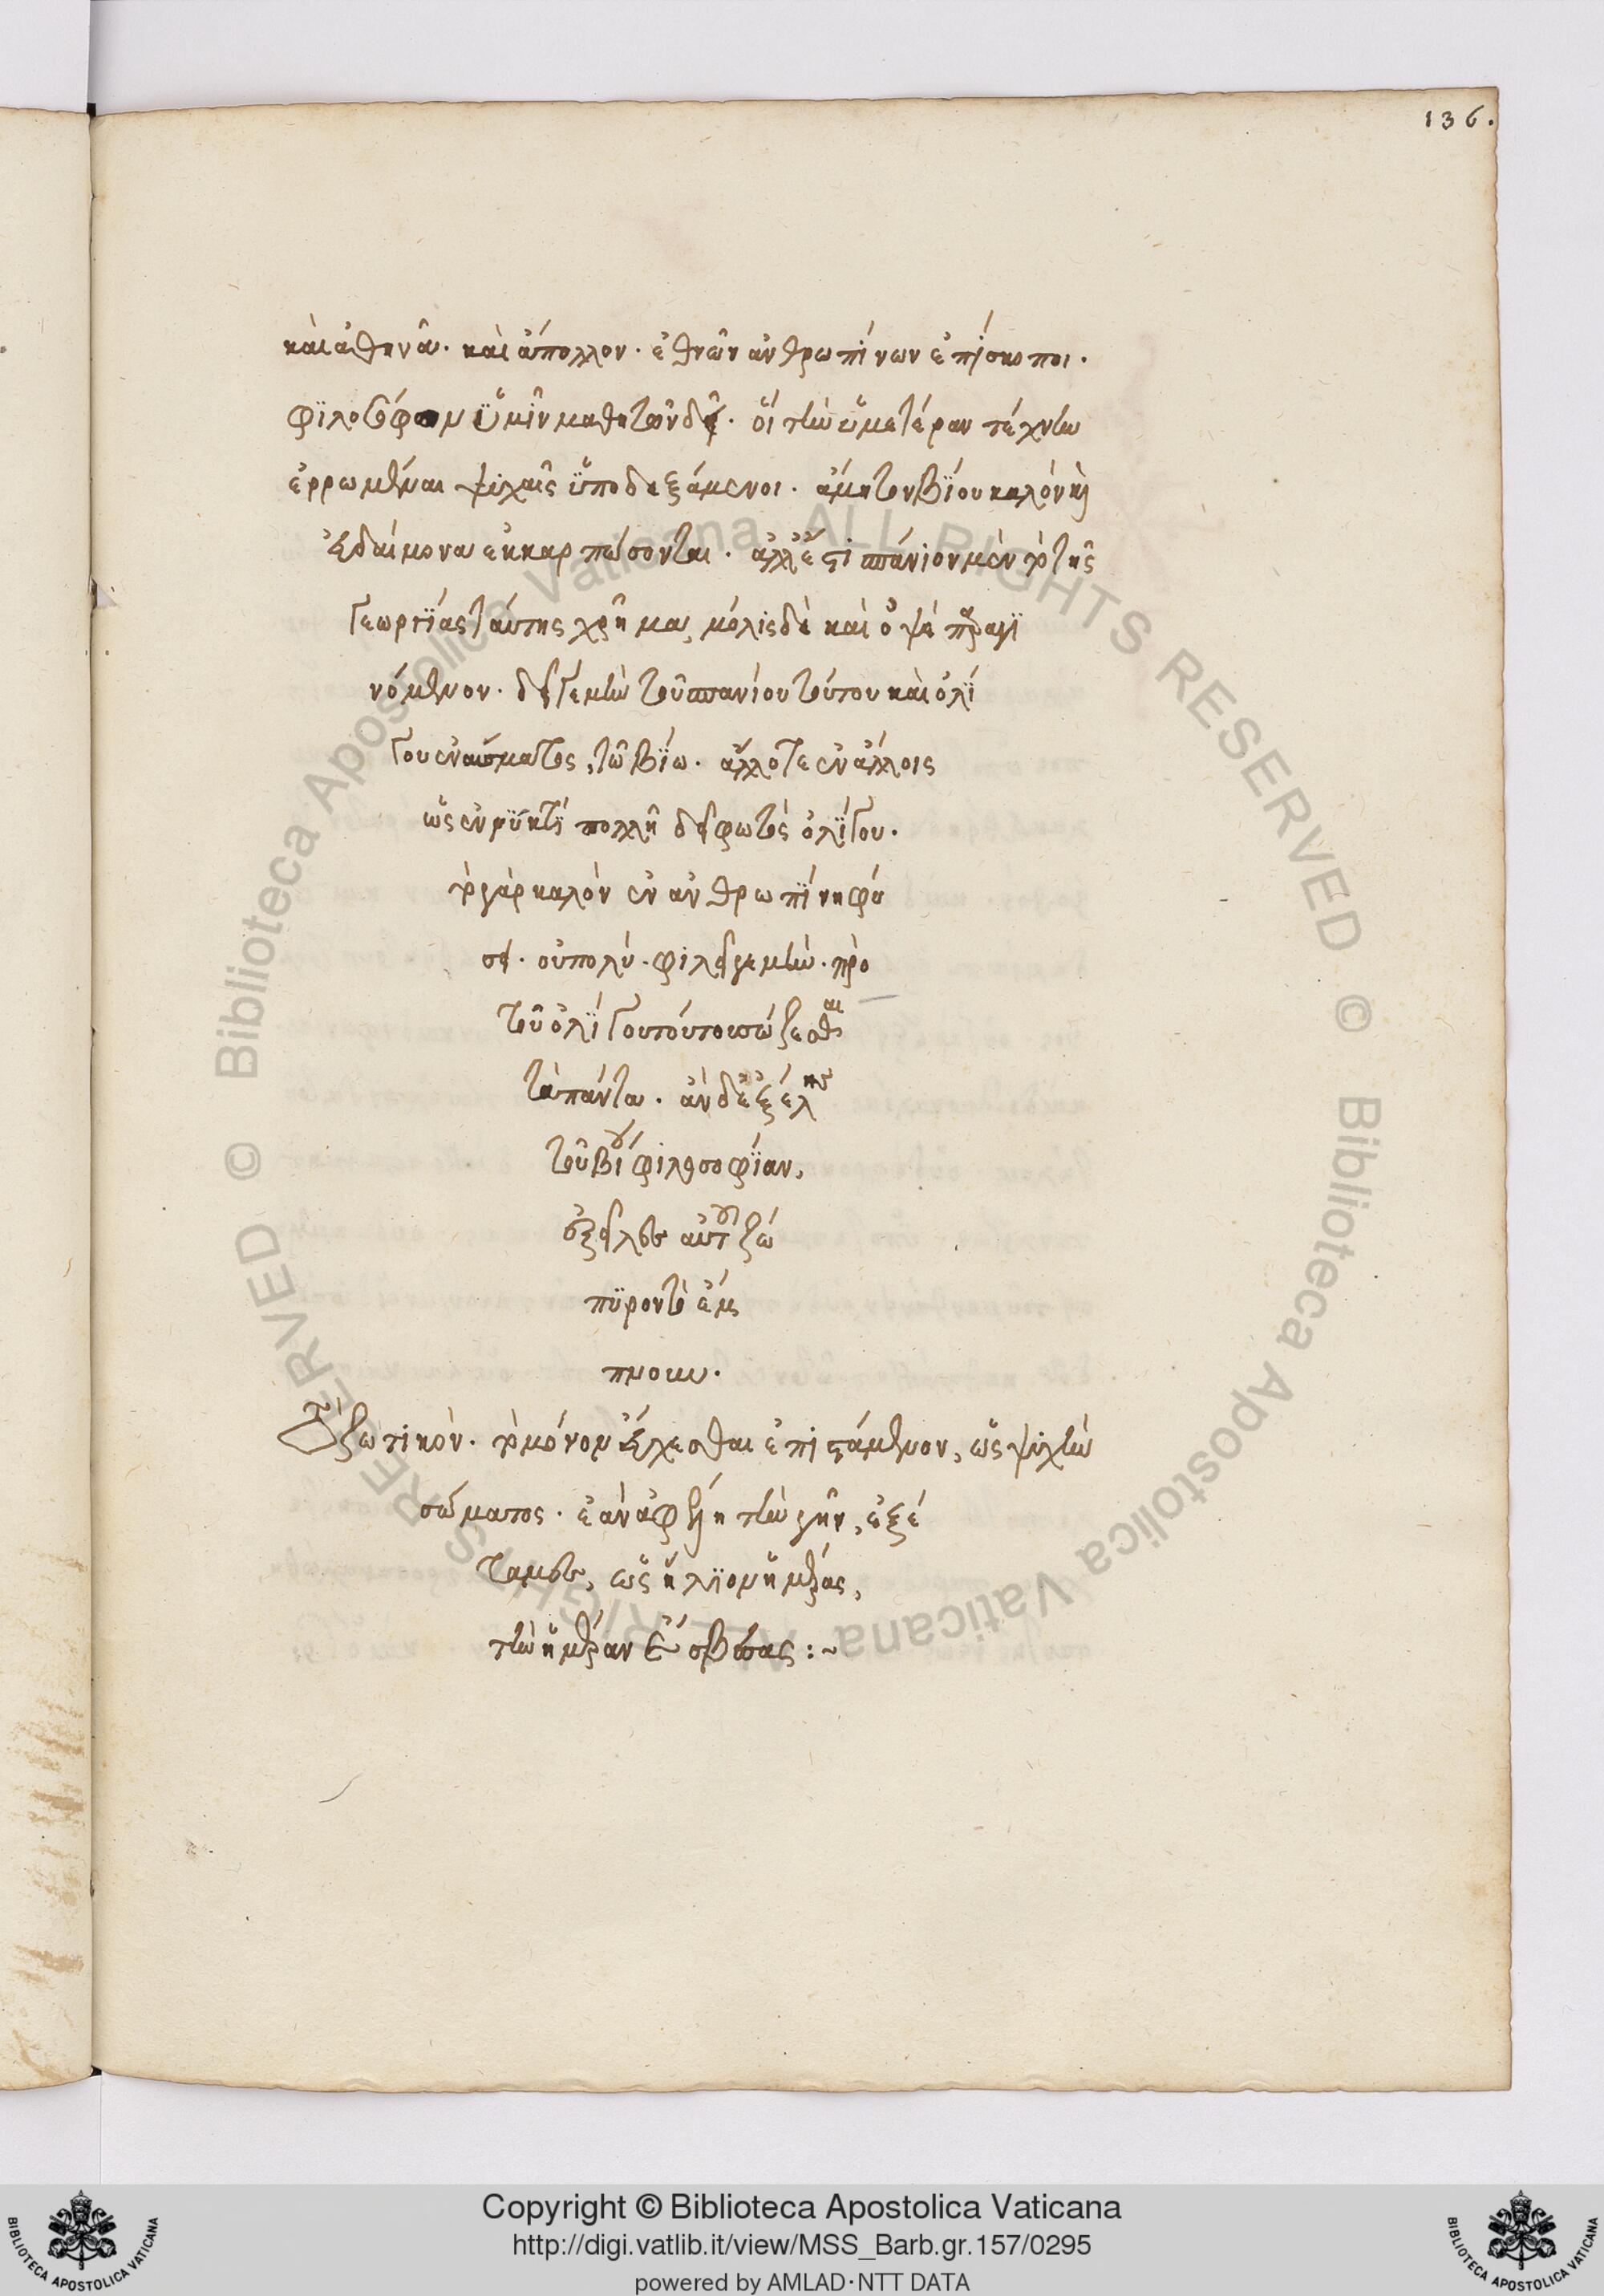 136.
καὶ ἀθηνᾶ. καὶ ἄπολλον. ἐθνῶν ἀνθρωπίνων ἐπίσκοποι.
φϊλοσόφων ϋμῖν μαθητῶν δεῖ. οἵ τὴν ὑμετέραν τέχνην
ἐρρωμέναι ψυχαῖς ϋποδεξάμενοι. ἀμητὸν βϊου καλὸν καὶ
εὐδαίμονα ἐκκαρπώσονται. ἀλλ' ἔστι σπάνιον μὲν τὸ τῆς
γεωργϊάς ταύτης χρῆμα, μόλις δὲ καὶ ὀψὲ παραγϊ
νόμενον. δεῖ γε μὴν τοῦ σπανίου τούτου καὶ ὀλϊ
γου ἐναύσματος, τῶ βϊω. ἄλλοτε ἐν ἄλλοις
ὡς ἐν νϋκτϊ πολλῆ δεῖ φωτὸς ὀλϊγου.
τὸ γὰρ καλὸν ἐν ἀνθρωπϊνη φύ
σει. οὐ πολύ. φιλεῖ γε μὴν. πρὸ
τοῦ ὀλϊγου τούτου σώζεσθαι
τὰ πάντα. ἂν δὲ ἐξέλης
τοῦ βίου φιλοσοφϊαν,
ἐξεῖλες αὐτοῦ ζώ
πϋρον τὸ ἔμ
πνουν.
Τὸ ζωτικὸν. τὸ μόνον εὔχεσθαι ἐπιστάμενον, ὡς ψυχὴν
σώματος. ἐὰν ἀφέλη τὴν γῆν, ἐξέ
ταμες, ὡς ἥλϊον ἡμέρας,
τὴν ἡμέραν ἔσβεσας :~
Copyright © Biblioteca Apostolica Vaticana
http://digi.vatlib.it/view/MSS_Barb.gr.157/0295
powered by AMLAD·NTT DATA
BIBLIOTECA APOSTOLICA VATICANA
BIBLIOTECA APOSTOLICA VATICANA
© Biblioteca Apostolica Vaticana ALL RIGHTS RESERVED
© Biblioteca Apostolica Vaticana ALL RIGHTS RESERVED